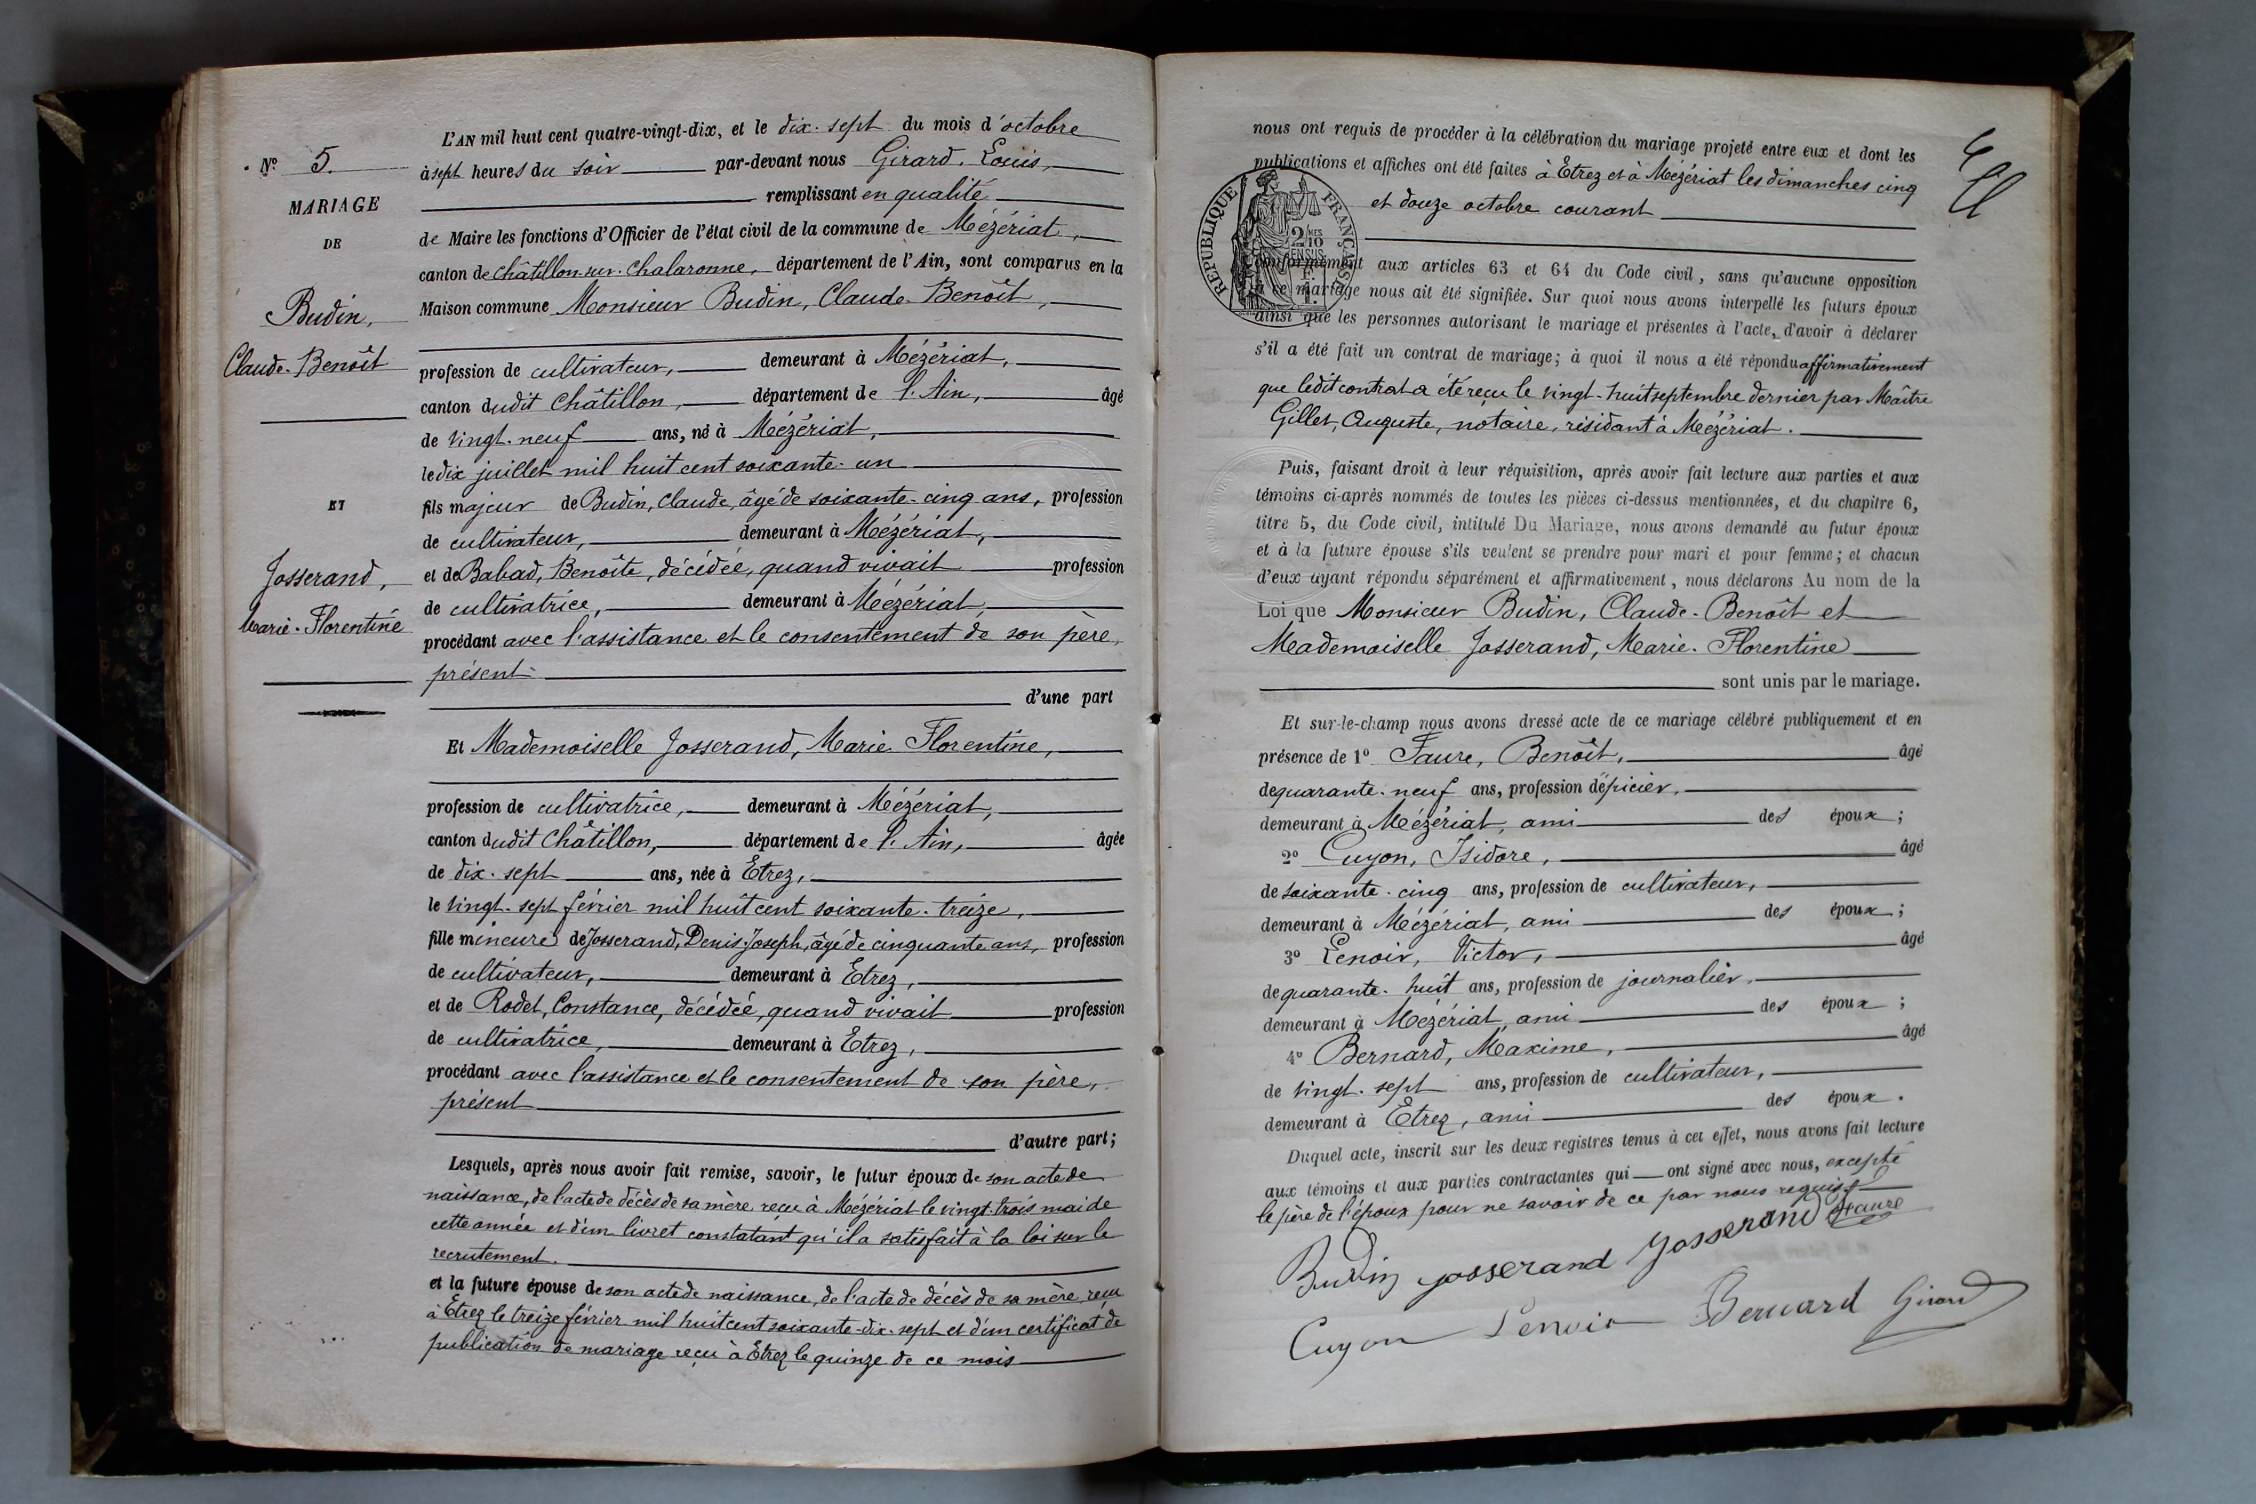 L'AN mil huit cent quatre-vingt-dix, et le dix-sept du mois d'octobre
à sept heures du soir par-devant nous Girard, Louis,
remplissant en qualité
de Maire les fonctions d'Officier de l'état civil de la commune de Mézériat,
canton de Châtillon-sur-Chalaronne, département de l'Ain, sont comparus en la
Maison commune Monsieur Budin, Claude-Benoît,
profession de cultivateur, demeurant à Mézériat,
canton dudit Châtillon, département de l'Ain, âgé
de vingt-neuf ans, né à Mézériat,
le dix juillet mil huit cent soixante-un
fils majeur de Budin, Claude, âgé de soixante-cinq ans, profession
de cultivateur, demeurant à Mézériat,
et de Babad, Benoîte, décédée, quand vivait profession
de cultivatrice, demeurant à Mézériat,
procédant avec l'assistance et le consentement de son père,
présent
d'une part
Et Mademoiselle Josserand, Marie-Florentine,
profession de cultivatrice, demeurant à Mézériat,
canton dudit Châtillon, département de l'Ain, âgée
de dix-sept ans, née à Etrez,
le vingt-sept février mil huit cent soixante-treize,
fille mineure de Josserand, Denis-Joseph, âgé de cinquante ans, profession
de cultivateur, demeurant à Etrez,
et de Rodet, Constance, décédée, quand vivait profession
de cultivatrice, demeurant à Etrez,
procédant avec l'assistance et le consentement de son père,
présent
d'autre part;
Lesquels, après nous avoir fait remise, savoir, le futur époux de son acte de
naissance, de l'acte de décès de sa mère reçu à Mézériat le vingt-trois mai de
cette année et d'un livret constatant qu'il a satisfait à la loi sur le
recrutement.
et la future épouse de son acte de naissance, de l'acte de décès de sa mère, reçu
à Etrez le treize février mil huit cent soixante-dix-sept et d'un certificat de
publication de mariage reçu à Etrez le quinze de ce mois
N° 5.
MARIAGE
DE
Budin,
Claude-Benoît
ET
Josserand,
Marie-Florentine
nous ont requis de procéder à la célébration du mariage projeté entre eux et dont les
publications et affiches ont été faites à Etrez et à Mézériat les dimanches cinq
et douze octobre courant
RÉPUBLIQUE FRANÇAISE
2 MES
10
EN SUS
conformément aux articles 63 et 64 du Code civil, sans qu'aucune opposition
à ce mariage nous ait été signifiée. Sur quoi nous avons interpellé les futurs époux
ainsi que les personnes autorisant le mariage et présentes à l'acte, d'avoir à déclarer
s'il a été fait un contrat de mariage; à quoi il nous a été répondu affirmativement
que ledit contrat a été reçu le vingt-huit septembre dernier par Maître
Gillet, Auguste, notaire, résidant à Mézériat.
Puis, faisant droit à leur réquisition, après avoir fait lecture aux parties et aux
témoins ci-après nommés de toutes les pièces ci-dessus mentionnées, et du chapitre 6,
titre 5, du Code civil, intitulé Du Mariage, nous avons demandé au futur époux
et à la future épouse s'ils veulent se prendre pour mari et pour femme; et chacun
d'eux ayant répondu séparément et affirmativement, nous déclarons Au nom de la
Loi que Monsieur Budin, Claude-Benoît et
Mademoiselle Josserand, Marie-Florentine
sont unis par le mariage.
Et sur-le-champ nous avons dressé acte de ce mariage célébré publiquement et en
présence de 1° Faure, Benoît, âgé
de quarante-neuf ans, profession d'épicier,
demeurant à Mézériat, ami des époux;
2° Cuyon, Isidore, âgé
de soixante-cinq ans, profession de cultivateur,
demeurant à Mézériat, ami des époux;
3° Lenoir, Victor, âgé
de quarante-huit ans, profession de journalier,
demeurant à Mézériat, ami des époux;
4° Bernard, Maxime, âgé
de vingt-sept ans, profession de cultivateur,
demeurant à Etrez, ami des époux.
Duquel acte, inscrit sur les deux registres tenus à cet effet, nous avons fait lecture
aux témoins et aux parties contractantes qui ont signé avec nous, excepté
le père de l'époux pour ne savoir de ce par nous requis
Budin Josserand Josserand Faure
Cuyon Lenoir Bernard Girard